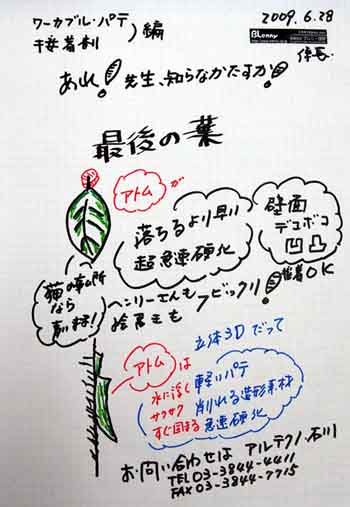 ワーカブル・パテ
接着剤 ) 編
2009.6.28
BLenny
係長.
あれ! 先生、知らなかたすか!
最後の葉
アトム が
落ちるより早い
超急速硬化
壁面
デコボコ
凹凸
接着OK
猫の事ム所
なら
青い玉!
ヘンリーさんも ビックリ!
絵恵きも
立体3Dだって
アトム は
水に浮く 軽いパテ
サクサク 削れる造形素材
すぐ固まる 急速硬化
お問い合わせは アルテクノ.石川
TEL 03-3844-4411
FAX 03-3844-7715